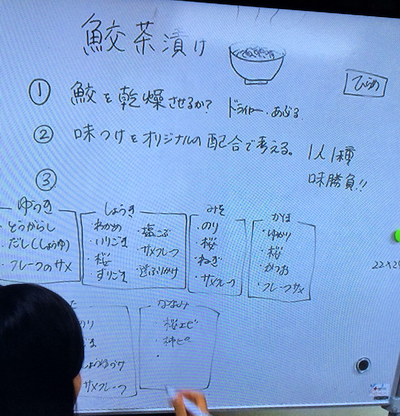 鮫茶漬け
ひらめ
① 鮫を乾燥させるか? ドライヤー・あぶる
② 味つけをオリジナルの配合で考える。
1人1種
味勝負!!
③
ゆうき
・とうがらし
・だし(しょうゆ)
・フレークのサメ
しょうき
わかめ
・いりごま
・桜
すりごま
・塩こぶ
・サメフレーク
みそ
・のり
・桜
・ねぎ
・サメフレーク
・ゆかり
・桜
・かつお
・フレークサメ
サメフレーク
桜エビ
・柿ピ
22×2